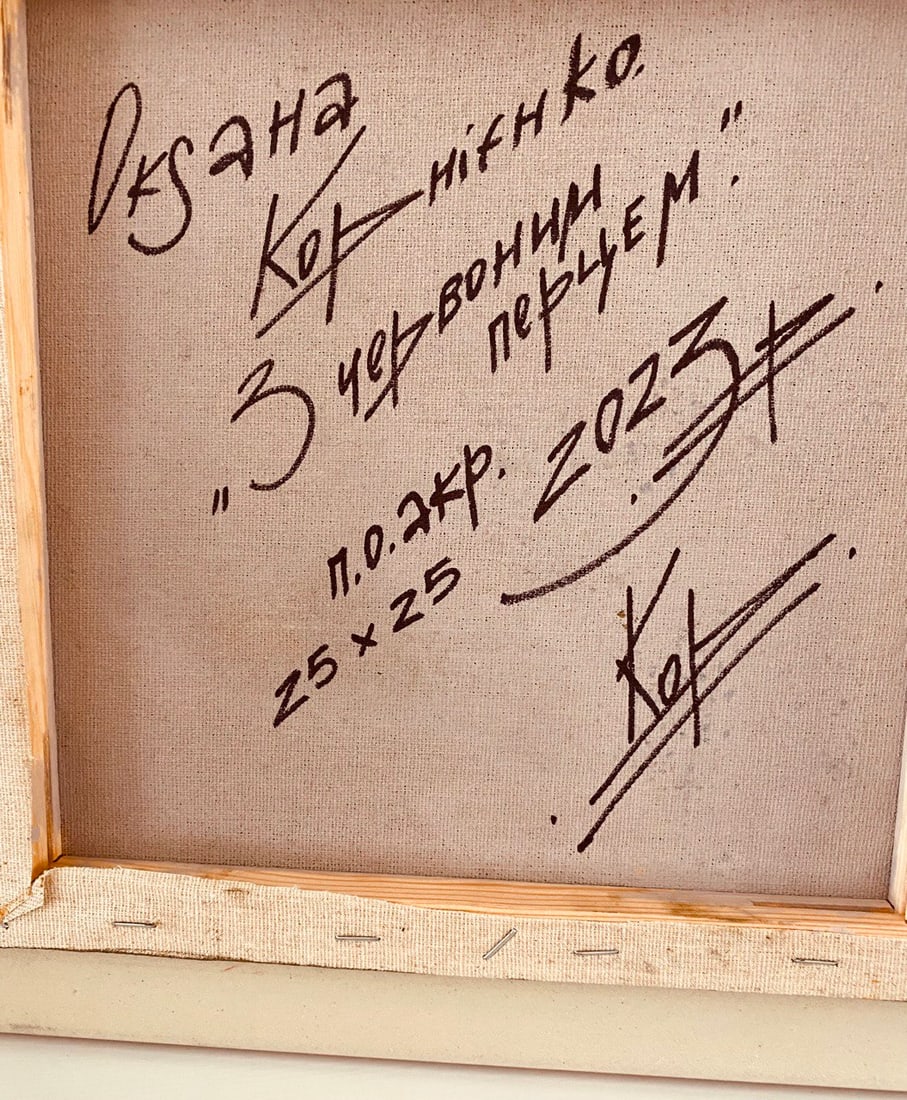 Оksана
Корнієнко.
„З червоним
перцем".
п.о.акр. 2023р.
25 x 25
Кор